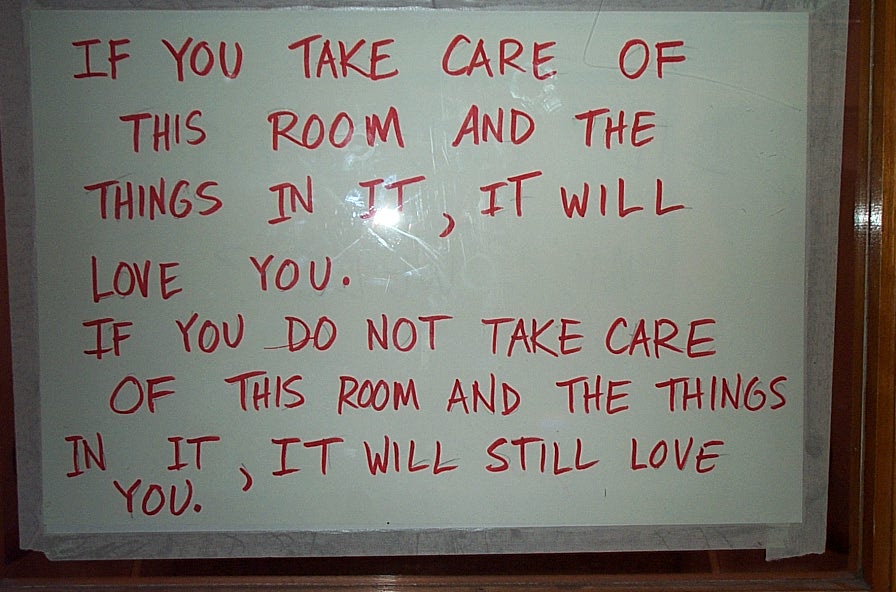 IF YOU TAKE CARE OF
THIS ROOM AND THE
THINGS IN IT, IT WILL
LOVE YOU.
IF YOU DO NOT TAKE CARE
OF THIS ROOM AND THE THINGS
IN IT, IT WILL STILL LOVE
YOU.